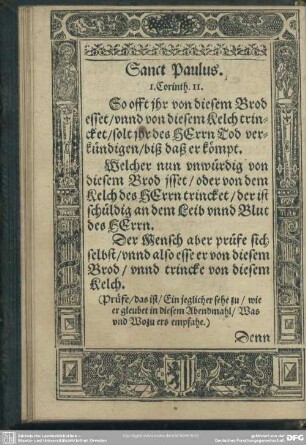 Sanct Paulus.
1. Corinth. 11.
So offt jhr von diesem Brod
esset/vnnd von diesem Kelch trin-
cket/solt jhr des HErrn Tod ver-
kündigen/biß daß er kömpt.
Welcher nun vnwürdig von
diesem Brod jsset/oder von dem
Kelch des HErrn trincket/der ist
schüldig an dem Leib vnnd Blut
des HErrn.
Der Mensch aber prüfe sich
selbst/vnnd also esse er von diesem
Brod/vnnd trincke von diesem
Kelch.
(Prüfe/das ist/Ein jeglicher sehe zu/wie
er gleubet in diesem Abendmahl/Was
vnd Wozu ers empfahe.)
Denn